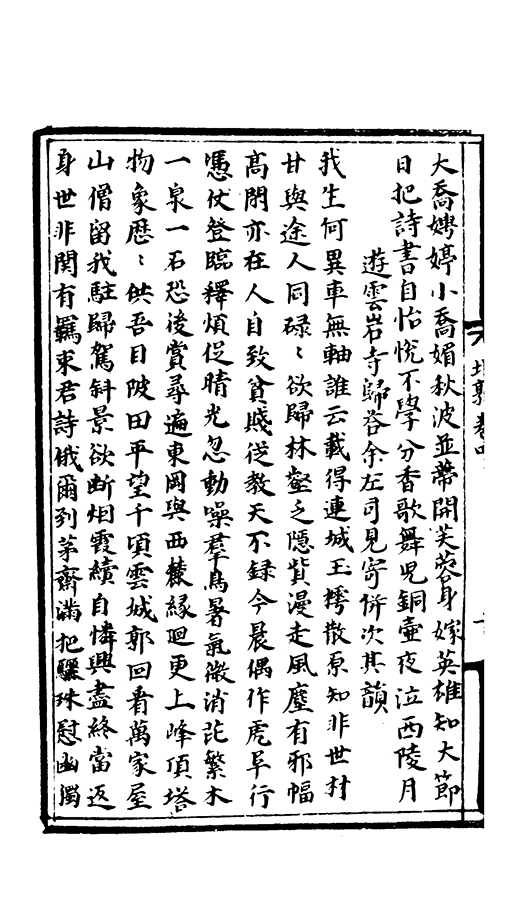 大喬娉婷小喬媚秋波並蒂開芙蓉身嫁英雄知大節
日把詩書自怡悅不學分香歌舞兒銅壺夜泣西陵月
遊雲岩寺歸答余左司見寄併次其韻
我生何異車無軸誰云載得連城玉樗散原知非世材
甘與途人同碌〻欲歸林壑乏隱貲漫走風塵有邪幅
高閒亦在人自致貧賤從教天不録今晨偶作虎阜行
憑仗登臨釋煩促晴光忽動噪羣鳥暑氣微消託繁木
一泉一石恐後賞尋遍東岡與西麓緣迴更上峰頂塔
物象歷〻供吾目陂田平望千頃雲城郭回看萬家屋
山僧留我駐歸駕斜景欲斷烟霞續自憐興盡終當返
身世非関有羈束君詩俄爾到茅齋滿把驪珠慰幽獨
卷四